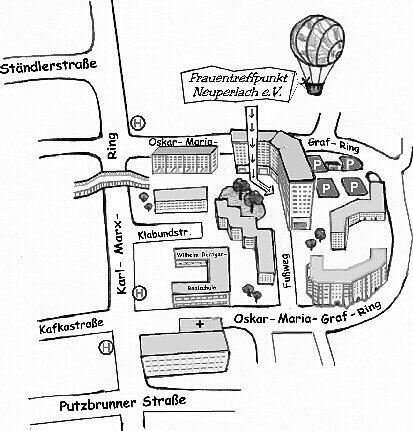 Ständlerstraße
Frauentreffpunkt
Neuperlach e.V.
H
Oskar- Maria-
Graf- Ring
P
P
P
P
Karl- Marx- Ring
Klabundstr.
Fußweg
Realschule
H
Oskar- Maria- Graf- Ring
Kafkastraße
H
Putzbrunner Straße